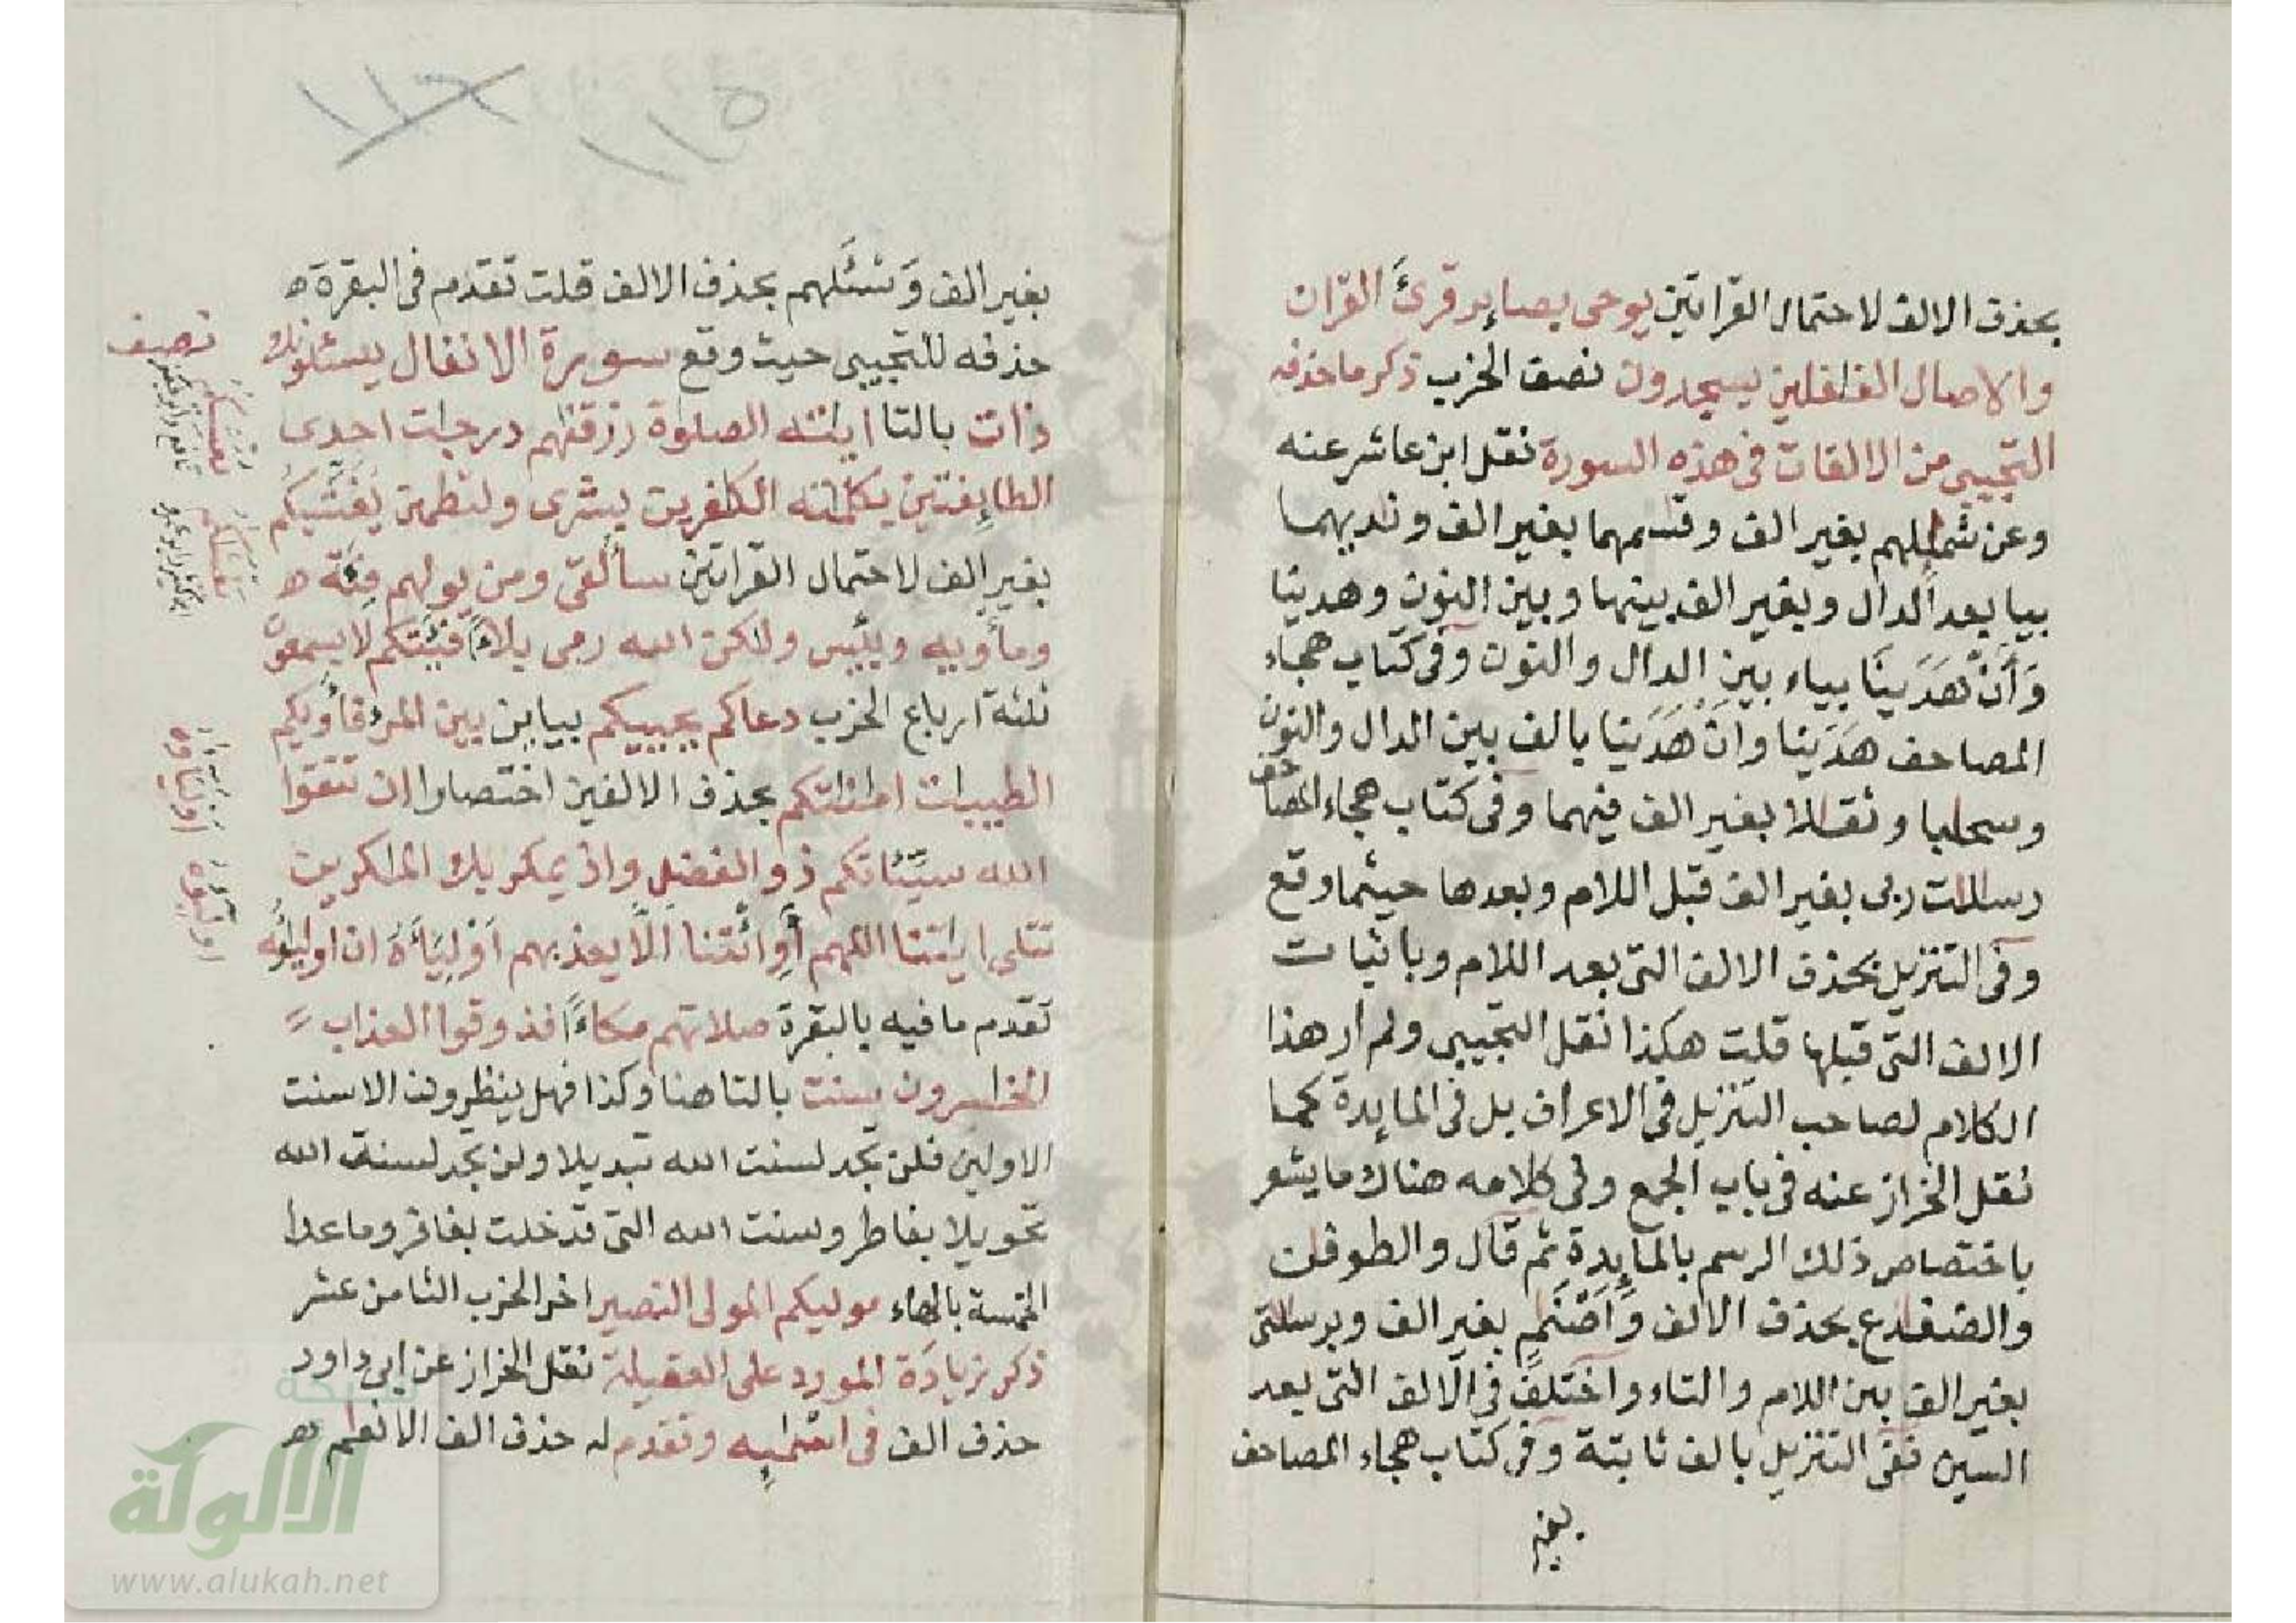 بحذف الالف لاحتمال القراتين يوحى بصاير قرئ القران
والاصال الغفلين يسجدون نصف الحزب ذكر ما حذفه
التجيبى من الالفات فى هذه السورة نقل ابن عاشر عنه
وعن شمىلهم بغير الف وقسمهما بغير الف ونديهما
بيا بعد الدال وبغير الف بينها وبين النون وهدينا
وَأَنْ هَدَينَا بياء بين الدال والنون وفى كتاب هجاء
المصاحف هَدَينا وان هَدَينا بالف بين الدال والنون
وسحابا وثقالا بغير الف فيهما وفى كتاب هجاء المصاحف
رسالات ربى بغير الف قبل اللام وبعدها حيثما وقع
وفى التنزيل بحذف الالف التى بعد اللام وباثبات
الالف التى قبلها قلت هكذا نقل التجيبى ولم ار هذا
الكلام لصاحب التنزيل فى الاعراف بل فى المايدة كما
نقل الخراز عنه فى باب الجمع وفى كلامه هناك ما يشعر
باختصاص ذلك الرسم بالمايدة ثم قال والطوفان
والضفادع بحذف الالف وَاَصْنَمٍ بغير الف وبرسالتى
بغير الف بين اللام والتاء واختلف فى الالف التى بعد
السين ففى التنزيل بالف ثابتة وفى كتاب هجاء المصاحف
بغير
١١٦ ١١٥
بغير الف وَسْئَلهم بحذف الالف قلت تقدم فى البقرة ه
حذفه للتجيبى حيث وقع سورة الانفال يسئلونك
ذات بالتا ايته الصلوة رزقنهم درجات احدى
الطايفتين بكلمته الكفرين بشرى ولتطمئن يغشيكم
بغير الف لاحتمال القراتين سألقى ومن يولهم فئة ه
ومأويه وبئس ولكن الله رمى بلاءً فئتكم لا يسمعون
ثلثة ارباع الحزب دعاكم يحييكم بيايين بين المرء فأويكم
الطيبات امنتكم بحذف الالفين اختصارا ان تتقوا
الله سيئاتكم ذو الفضل واذ يمكر بك المكرين
تتلى ايتنا اللهم أو ائتنا ألا يعذبهم اَوْلِيَاءَهُ ان اولياؤه
تقدم ما فيه بالبقرة صلاتهم مكاءً فذوقوا العذاب
الخسرون سنت بالتا هنا وكذا فهل ينظرون الا سنت
الاولين فلن تجد لسنت الله تبديلا ولن تجد لسنت الله
تحويلا بفاطر وسنت الله التى قد خلت بغافر وما عدا
الخمسة بالهاء موليكم المولى النصير اخر الحزب الثامن عشر
ذكر زيادة المورد على العقيلة نقل الخراز عن ابى داود
حذف الف فى وتقدم له حذف الف الانعام
نصف
شبكة
الالوكة
www.alukah.net